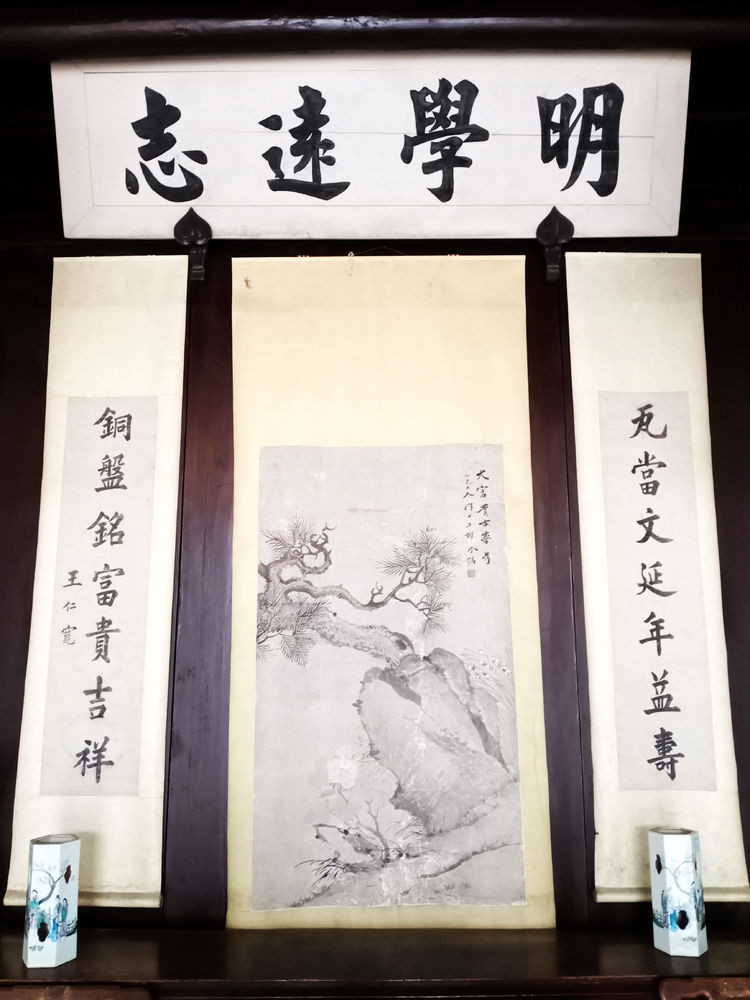 明學遠志
瓦當文延年益壽
大富貴
銅盤銘富貴吉祥
王仁寬